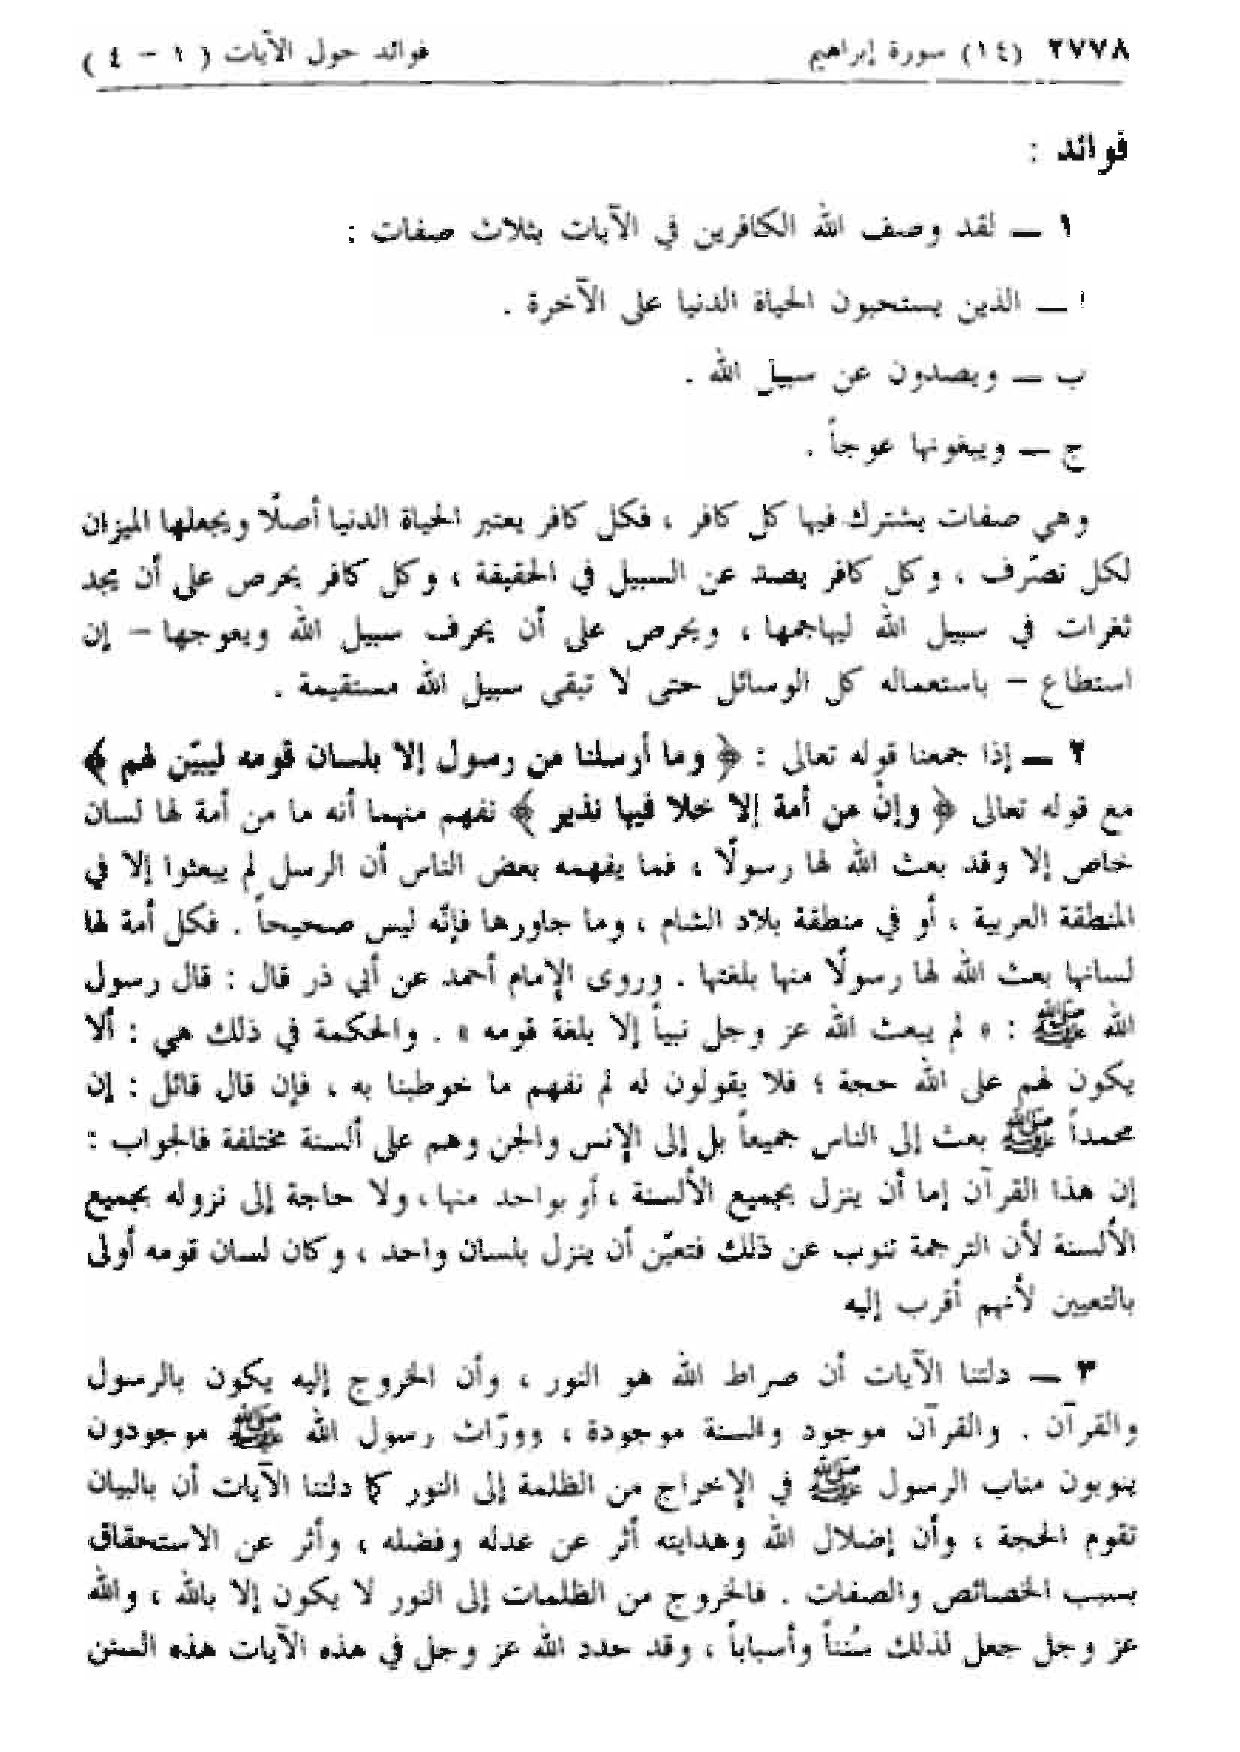 ٢٧٧٨ (١٤) سورة إبراهيم فوائد حول الآيات ( ١ – ٤ )
فوائد :
١ ــ لقد وصف الله الكافرين في الآيات بثلاث صفات :
ا ــ الذين يستحبون الحياة الدنيا على الآخرة .
ب ــ ويصدون عن سبيل الله .
ج ــ ويبغونها عوجاً .
وهي صفات يشترك فيها كل كافر ، فكل كافر يعتبر الحياة الدنيا أصلًا ويجعلها الميزان
لكل تصّرف ، وكل كافر يصد عن السبيل في الحقيقة ، وكل كافر يحرص على أن يجد
ثغرات في سبيل الله ليهاجمها ، ويحرص على أن يحرف سبيل الله ويعوجها – إن
استطاع – باستعماله كل الوسائل حتى لا تبقى سبيل الله مستقيمة .
٢ ــ إذا جمعنا قوله تعالى : ﴿ وما أرسلنا من رسول إلا بلسان قومه ليبيّن لهم ﴾
مع قوله تعالى ﴿ وإنْ من أمة إلا خلا فيها نذير ﴾ نفهم منهما أنه ما من أمة لها لسان
خاص إلا وقد بعث الله لها رسولًا ، فما يفهمه بعض الناس أن الرسل لم يبعثوا إلا في
المنطقة العربية ، أو في منطقة بلاد الشام ، وما جاورها فإنّه ليس صحيحاً . فكل أمة لها
لسانها بعث الله لها رسولًا منها بلغتها . وروى الإمام أحمد عن أبي ذر قال : قال رسول
الله ﷺ : « لم يبعث الله عز وجل نبياً إلا بلغة قومه » . والحكمة في ذلك هي : ألا
يكون لهم على الله حجة ؛ فلا يقولون له لم نفهم ما خوطبنا به ، فإن قال قائل : إن
محمداً ﷺ بعث إلى الناس جميعاً بل إلى الإنس والجن وهم على ألسنة مختلفة فالجواب :
إن هذا القرآن إما أن ينزل بجميع الألسنة ، أو بواحد منها ، ولا حاجة إلى نزوله بجميع
الألسنة لأن الترجمة تنوب عن ذلك فتعيّن أن ينزل بلسان واحد ، وكان لسان قومه أولى
بالتعيين لأنهم أقرب إليه
٣ ــ دلتنا الآيات أن صراط الله هو النور ، وأن الخروج إليه يكون بالرسول
والقرآن . والقرآن موجود والسنة موجودة ، وورّاث رسول الله ﷺ موجودون
ينوبون مناب الرسول ﷺ في الإخراج من الظلمة إلى النور كما دلتنا الآيات أن بالبيان
تقوم الحجة ، وأن إضلال الله وهدايته أثر عن عدله وفضله ، وأثر عن الاستحقاق
بسبب الخصائص والصفات . فالخروج من الظلمات إلى النور لا يكون إلا بالله ، والله
عز وجل جعل لذلك سُنناً وأسباباً ، وقد حدد الله عز وجل في هذه الآيات هذه السنن